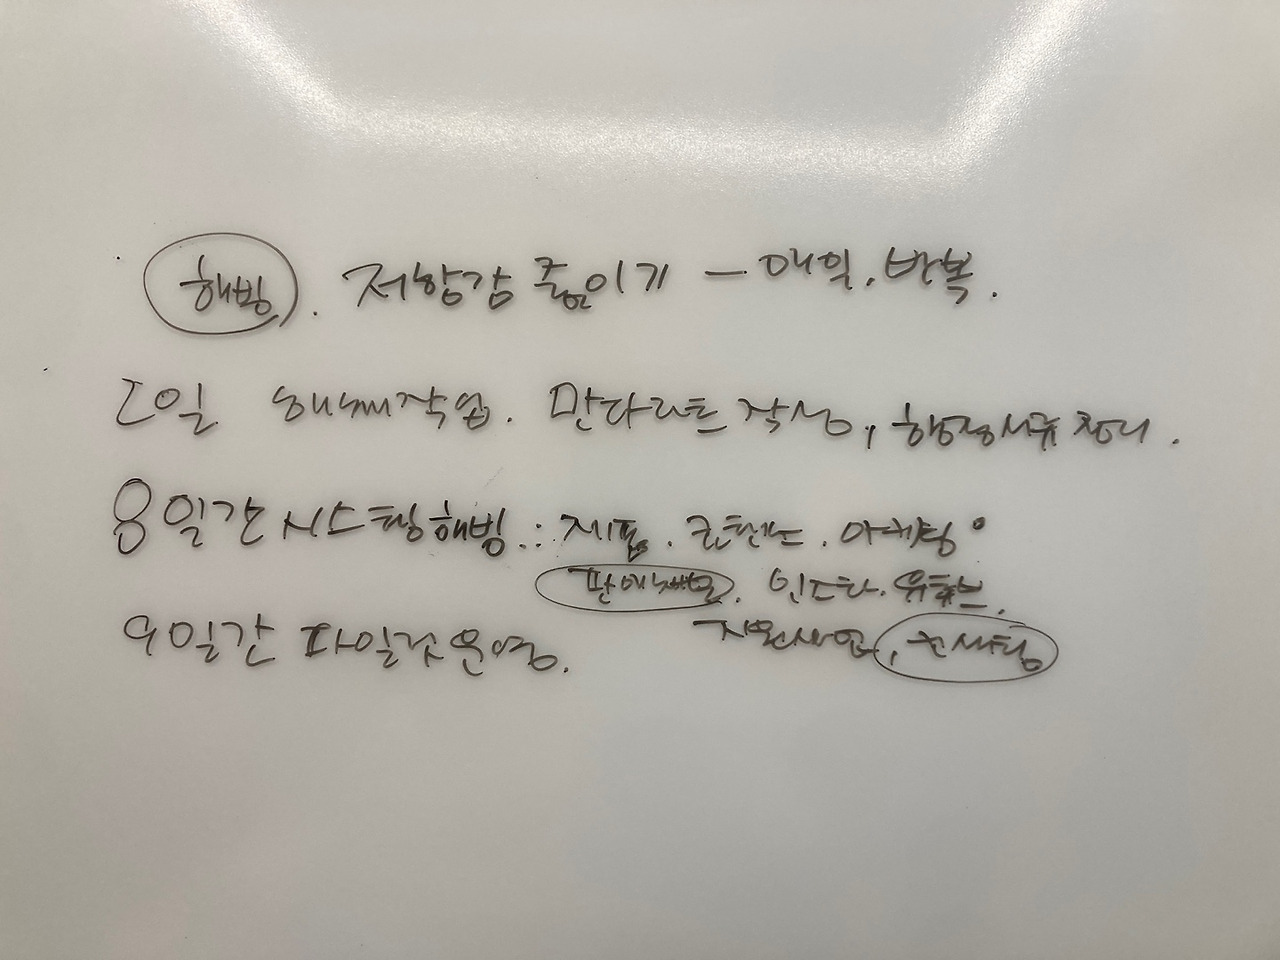 해빙. 저항감 줄이기 — 매일. 반복.
20일 해빙작업. 만다라트 작성, 행정서류 정리.
8일간 시스템 해빙.: 제품. 콘텐츠. 마케팅
판매채널. 인스타. 유튜브.
9일간 파일럿 운영. 지원사업, 컨설팅